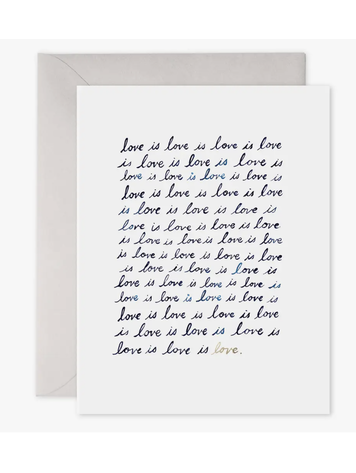 love is love is love is love
is love is love is love is
love is love is love is love is
love is love is love is love
is love is love is love is
love is love is love is love
is love is love is love is love
is love is love is love is love
is love is love is love is
love is love is love is love is
love is love is love is love
love is love is love is love
is love is love is love is
love is love is love.